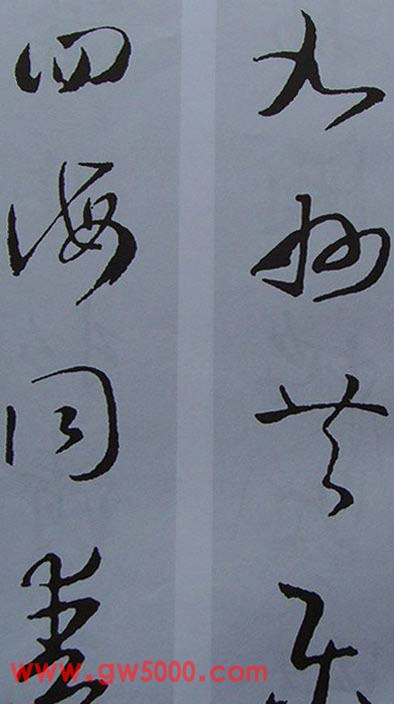 九州共
四海同
www.gw5000.com